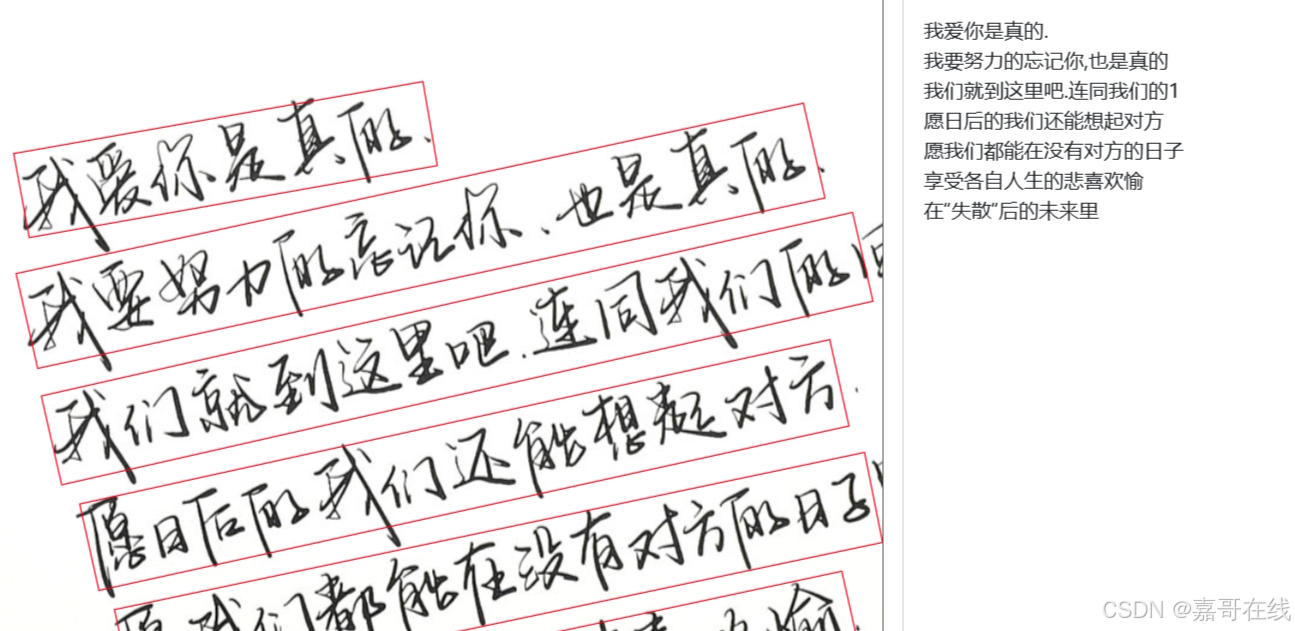 我爱你是真的.
我要努力的忘记你、也是真的.
我们就到这里吧.连同我们的
愿日后的我们还能想起对方.
愿我们都能在没有对方的日子
愉
我爱你是真的.
我要努力的忘记你,也是真的
我们就到这里吧.连同我们的1
愿日后的我们还能想起对方
愿我们都能在没有对方的日子
享受各自人生的悲喜欢愉
在“失散”后的未来里
CSDN @嘉哥在线